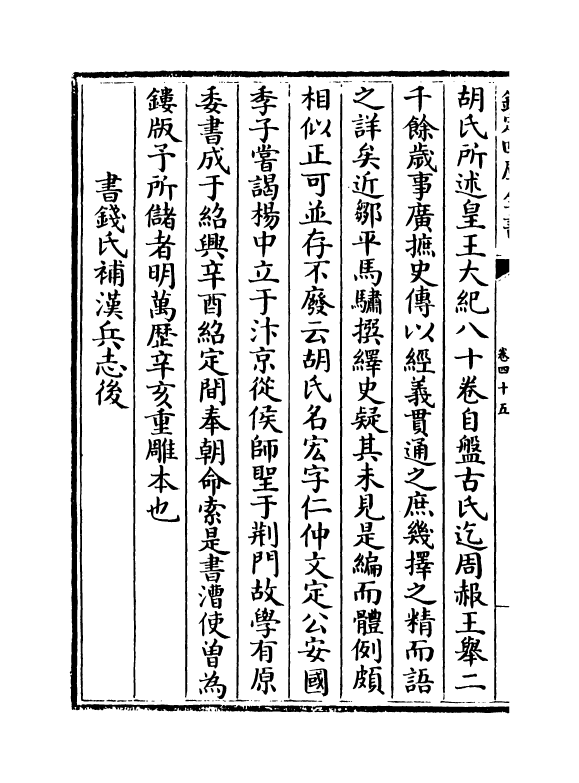 欽定四庫全書
卷四十五
胡氏所述皇王大紀八十卷自盤古氏迄周赧王舉二
千餘歲事廣摭史傳以經義貫通之庶幾擇之精而語
之詳矣近鄒平馬驌撰繹史疑其未見是編而體例頗
相似正可並存不廢云胡氏名宏字仁仲文定公安國
季子嘗謁楊中立于汴京從侯師聖于荆門故學有原
委書成于紹興辛酉紹定間奉朝命索是書漕使曽為
鏤版予所儲者明萬歴辛亥重雕本也
書錢氏補漢兵志後